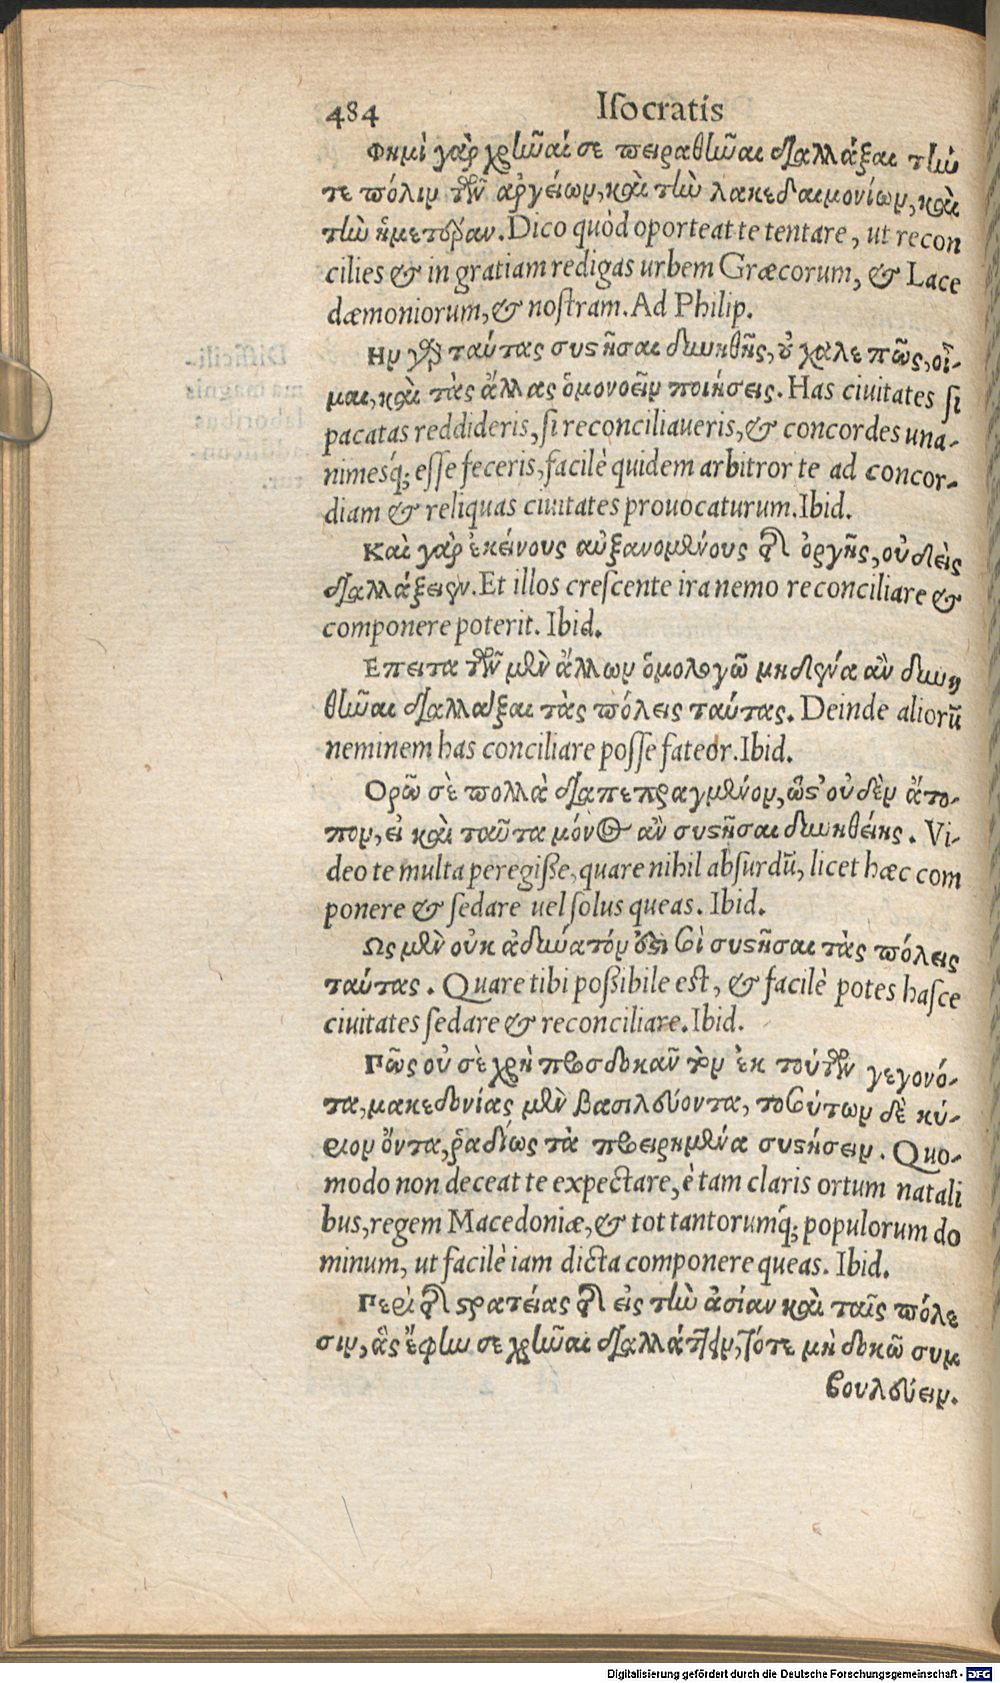 484 Iſocratis
Φημὶ γὰρ χρῆναί σε πειραθῆναι διαλλάξαι τήν
τε πόλιν τῶν αργείων, καὶ τὴν λακεδαιμονίων, καὶ
τὴν ἡμετέραν. Dico quòd oporteat te tentare, ut recon
cilies & in gratiam redigas urbem Græcorum, & Lace
dæmoniorum, & noſtram. Ad Philip.
Ην γὰρ ταύτας συςῆσαι δυνηθῆς, οὐ χαλεπῶς, οἶ-
μαι, καὶ τὰς ἄλλας ὁμονοεῖν ποιήσεις. Has ciuitates ſi
pacatas reddideris, ſi reconciliaueris, & concordes una-
nimesq́; eſſe feceris, facilè quidem arbitror te ad concor-
diam & reliquas ciuitates prouocaturum. Ibid.
Καὶ γὰρ ἐκείνους αὐξανομένους τῆς ὀργῆς, οὐδεὶς
διαλλάξειεν. Et illos creſcente ira nemo reconciliare &
componere poterit. Ibid.
Επειτα τῶν μὲν ἄλλων ὁμολογῶ μηδένα ἂν δυνη
θῆναι διαλλάξαι τὰς πόλεις ταύτας. Deinde aliorū
neminem has conciliare poſſe fateor. Ibid.
Ορῶ σὲ πολλὰ διαπεπραγμένον, ὥς' οὐδὲν ἄτο-
πον, εἰ καὶ ταῦτα μόνος ἂν συςῆσαι δυνηθείης. Vi-
deo te multa peregiſſe, quare nihil abſurdū, licet hæc com
ponere & ſedare uel ſolus queas. Ibid.
Ως μὲν οὐκ ἀδυνατόν ἐςί σοὶ συςῆσαι τὰς πόλεις
ταύτας. Quare tibi poſſibile eſt, & facilè potes haſce
ciuitates ſedare & reconciliare. Ibid.
Πῶς οὐ σὲ χρὴ προσδοκᾶν τὸν ἐκ τούτων γεγονό-
τα, μακεδονίας μὲν βασιλεύοντα, τοσούτων δὲ κύ-
ριον ὄντα, ῥαδίως τὰ προειρημένα συςήσειν. Quo-
modo non deceat te expectare, è tam claris ortum natali
bus, regem Macedoniæ, & tot tantorumq́; populorum do
minum, ut facilè iam dicta componere queas. Ibid.
Περὶ τῆς ςρατείας τῆς εἰς τὴν ἀσίαν καὶ ταῖς πόλε
σιν, ἃς ἔφην σε χρῆναι διαλλάττειν, τότε μὴ δοκῶ συμ
βουλεύειν.
Digitalisierung gefördert durch die Deutsche Forschungsgemeinschaft - DFG